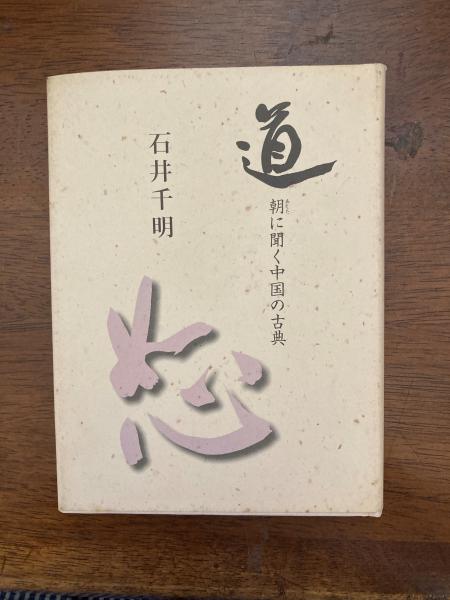 道
あした
朝に聞く中国の古典
石井千明
恕